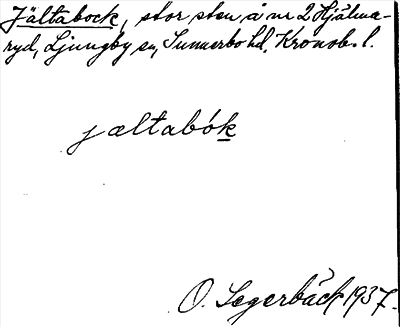 Jältabock, stor sten å nr 2 Hjälma-
ryd, Ljungby sn, Sunnerbo hd, Kronob. l.
jæltabók
O. Segerbäck 1937.